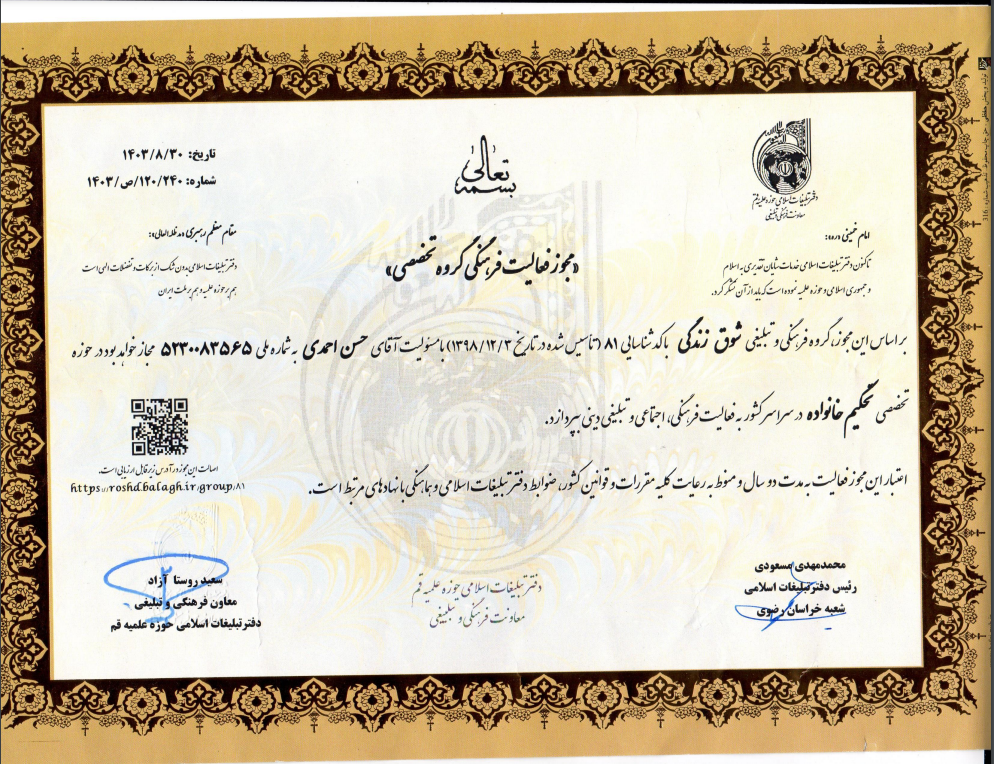 بسمه تعالی
تاریخ: ۱۴۰۳/۸/۳۰
شماره: ۱۲۰/۲۴۰/ص/۱۴۰۳
دفتر تبلیغات اسلامی حوزه علمیه قم
معاونت فرهنگی و تبلیغی
امام خمینی «ره»:
تاکنون دفتر تبلیغات اسلامی خدمات شایان تقدیری به اسلام
و جمهوری اسلامی و حوزه علمیه نموده است که باید از آن تشکر کرد.
مقام معظم رهبری «مدظله العالی»:
دفتر تبلیغات اسلامی بدون شک از برکات و تفضلات الهی است
هم بر حوزه علمیه و هم بر ملت ایران
«مجوز فعالیت فرهنگی گروه تخصصی»
بر اساس این مجوز، گروه فرهنگی و تبلیغی شوق زندگی با کد شناسایی ۸۱ (تأسیس شده در تاریخ ۱۳۹۸/۱۲/۳) با مسئولیت آقای حسن احمدی به شماره ملی ۵۲۳۰۰۸۳۵۶۵ مجاز خواهد بود در حوزه
تخصصی تحکیم خانواده در سراسر کشور به فعالیت فرهنگی، اجتماعی و تبلیغی دینی بپردازد.
اعتبار این مجوز فعالیت به مدت دو سال و منوط به رعایت کلیه مقررات و قوانین کشور، ضوابط دفتر تبلیغات اسلامی و هماهنگی با نهادهای مرتبط است.
اصالت این مجوز در آدرس زیر قابل ارزیابی است.
https://roshd.balagh.ir/group/۸۱
محمدمهدی مسعودی
رئیس دفتر تبلیغات اسلامی
شعبه خراسان رضوی
دفتر تبلیغات اسلامی حوزه علمیه قم
معاونت فرهنگی و تبلیغی
سعید روستا آزاد
معاون فرهنگی و تبلیغی
دفتر تبلیغات اسلامی حوزه علمیه قم